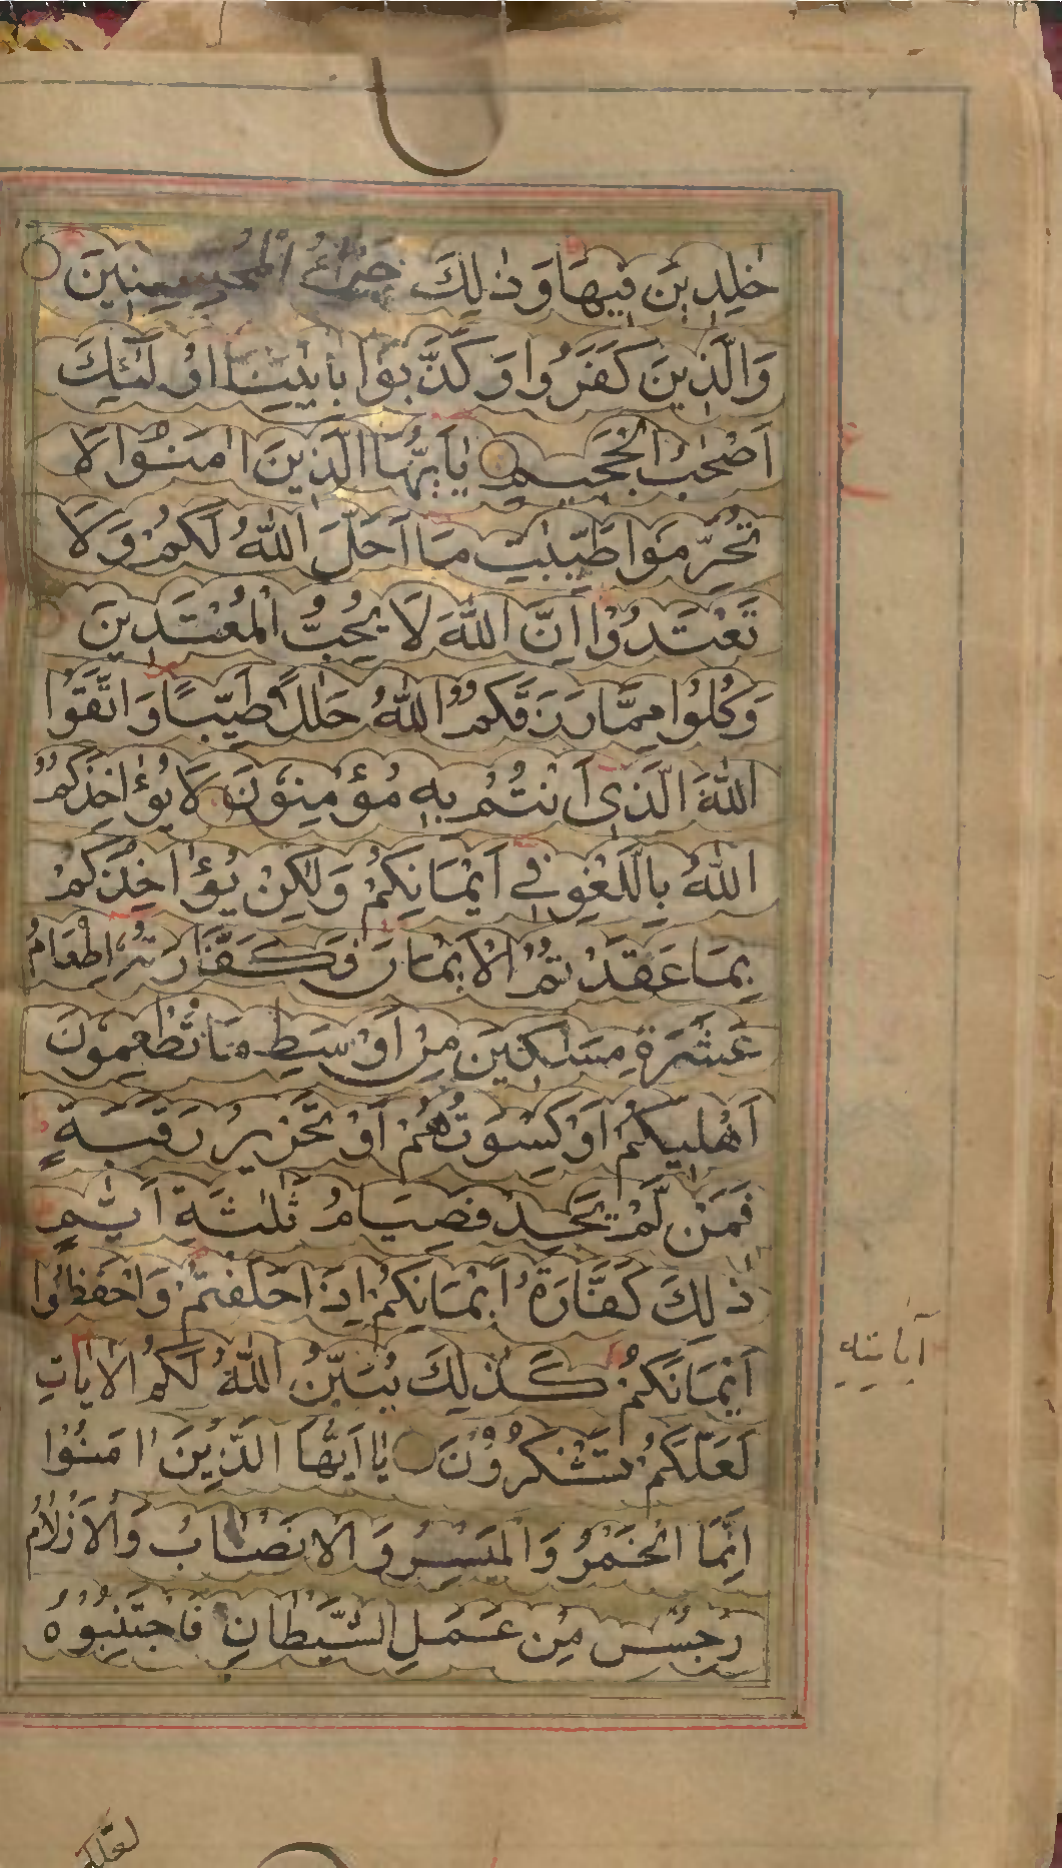 خٰلِدِينَ فِيهَا وَذٰلِكَ جَزَآءُ الْمُحْسِنِينَ
وَالَّذِينَ كَفَرُوا وَكَذَّبُوا بِاٰيٰتِنَا اُولٰٓئِكَ
اَصْحٰبُ الْجَحِيمِ يٰاَيُّهَا الَّذِينَ اٰمَنُوا لَا
تُحَرِّمُوا طَيِّبٰتِ مَا اَحَلَّ اللّٰهُ لَكُمْ وَلَا
تَعْتَدُوْا اِنَّ اللّٰهَ لَا يُحِبُّ الْمُعْتَدِينَ
وَكُلُوا مِمَّا رَزَقَكُمُ اللّٰهُ حَلٰلًا طَيِّبًا وَاتَّقُوا
اللّٰهَ الَّذِي اَنْتُمْ بِهٖ مُؤْمِنُونَ لَا يُؤٰاخِذُكُمُ
اللّٰهُ بِاللَّغْوِ فِي اَيْمَانِكُمْ وَلٰكِنْ يُؤٰاخِذُكُمْ
بِمَا عَقَدْتُمُ الْاَيْمَانَ فَكَفَّارَتُهٗ اِطْعَامُ
عَشَرَةِ مَسٰكِينَ مِنْ اَوْسَطِ مَا تُطْعِمُونَ
اَهْلِيكُمْ اَوْ كِسْوَتُهُمْ اَوْ تَحْرِيرُ رَقَبَةٍ
فَمَنْ لَّمْ يَجِدْ فَصِيَامُ ثَلٰثَةِ اَيَّامٍ
ذٰلِكَ كَفَّارَةُ اَيْمَانِكُمْ اِذَا حَلَفْتُمْ وَاحْفَظُوا
اَيْمَانَكُمْ كَذٰلِكَ يُبَيِّنُ اللّٰهُ لَكُمُ الْاٰيَاتِ
لَعَلَّكُمْ تَشْكُرُوْنَ يٰااَيُّهَا الَّذِيْنَ اٰمَنُوْا
اِنَّمَا الْخَمْرُ وَالْمَيْسِرُ وَالْاَنْصَابُ وَالْاَزْلَامُ
رِجْسٌ مِنْ عَمَلِ الشَّيْطَانِ فَاجْتَنِبُوْهُ